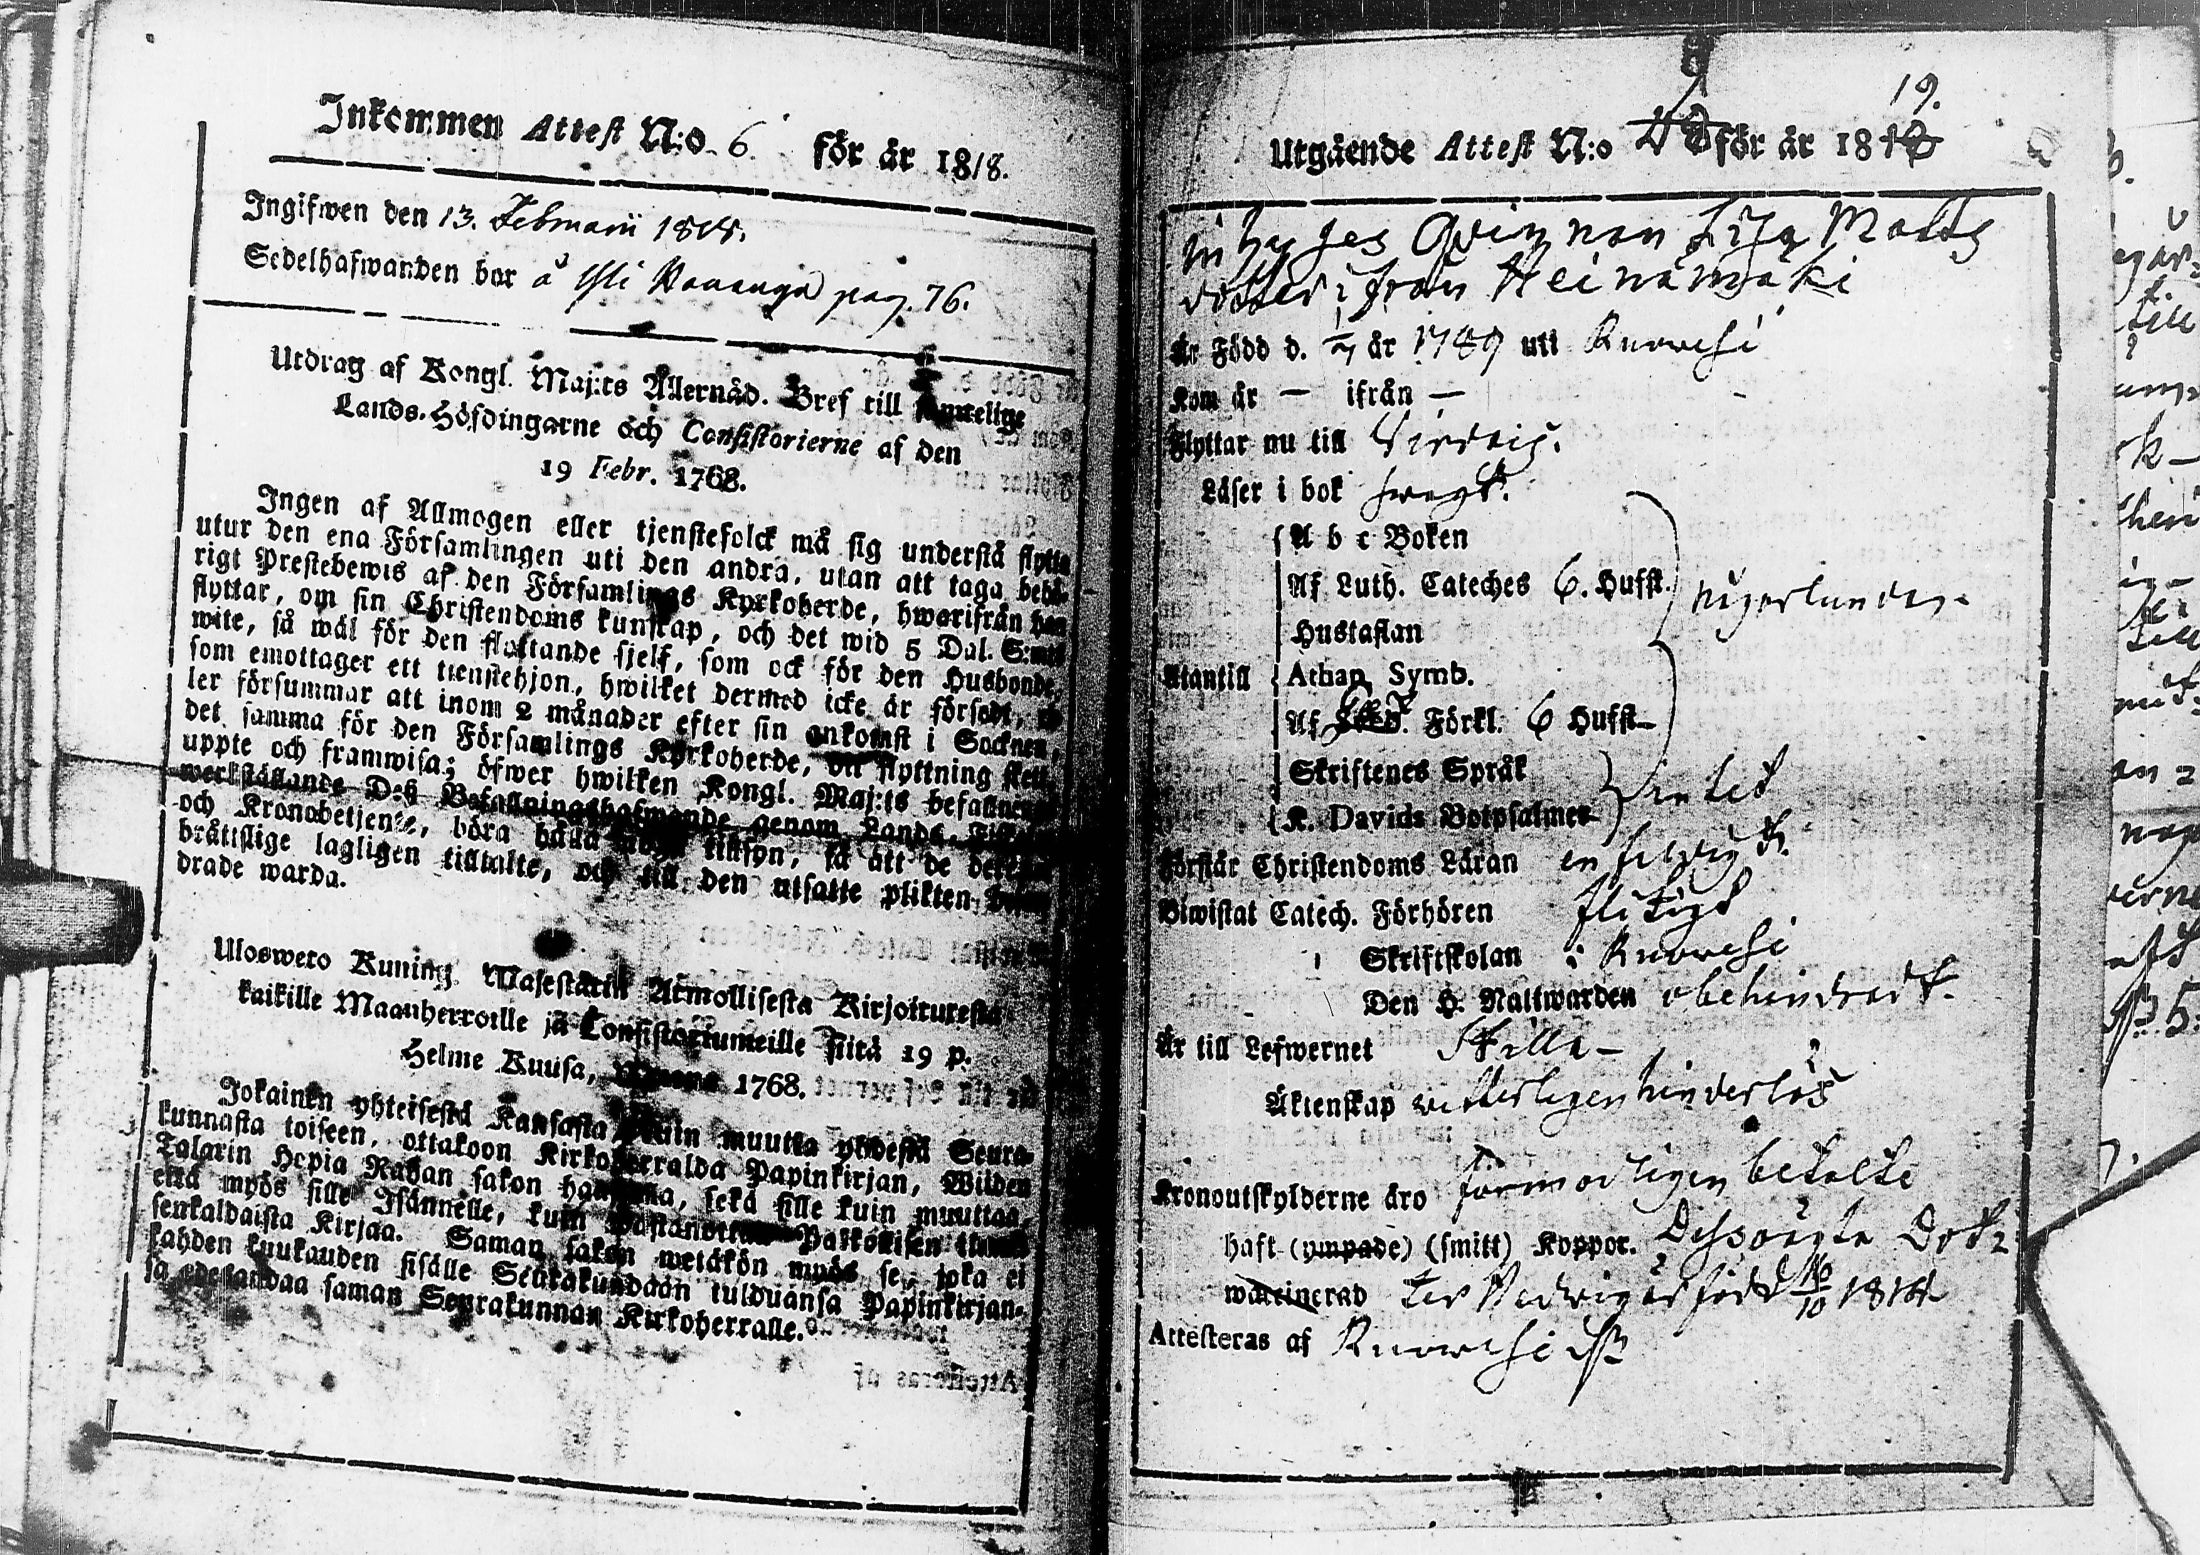 Inkommen Attest N:o 6. för år 1818.
Ingifwen den 13. Februarii 1818.
Sedelhafwanden bor å Yli pag. 76.
Utdrag af Kongl. Maj:ts Allernåd. Bref till samtelige
Lands-Höfdingarne och Consistorierne af den
19 Febr. 1768.
Ingen af Allmogen eller tjenstefolck må sig understå flytta
utur den ena Församlingen uti den andra, utan att taga behö-
rigt Prestebewis af den Församlings Kyrkoherde, hwarifrån han
flyttar, om sin Christendoms kunskap, och det wid 5 Dal. S:mt
wite, så wäl för den flyttande sjelf, som ock för den Husbonde,
som emottager ett tienstehjon, hwilket dermed icke är försedt, el-
ler försummar att inom 2 månader efter sin ankomst i Socknen,
det samma för den Församlings Kyrkoherde, dit flyttning skett,
uppte och framwisa; öfwer hwilken Kongl. Maj:ts befallnings
werkställande Deß Befallningshafwande genom Lands-Fiskaler
och Kronobetjente, böra hålla noga tillsyn, så att de
brättslige lagligen tilltalte, och till den utsatte plikten
drade warda.
Uloswero Kuning. Majestätin Armollisesta Kirjoituresta
kaikille Maanherroille ja Consistoriumeille siitä 19 p.
Helme Kuusa, Wuonna 1768.
Jokainen yhteisestä Kansasta kuin muutta yhdestä Seura-
kunnasta toiseen, ottakoon Kirkoherralda Papinkirjan, Wiiden
Talarin Hopia Rahan sakon haastolla, sekä sille kuin muuttaa,
että myös sille Isännelle, kuin wastanottaa Palkollisen ilman
senkaldaista Kirjaa. Saman sakon wetäkön myös se, joka ei
kahden kuukauden sisälle Seurakundaan tulduansa Papinkirjan-
sa edestandaa saman Seurakunnan Kirkoherralle.
19.
Utgående Attest N:o för år 18
Inhyses Qvinnan Lisa Matts
dotter ifrån Heinämäki
Är Född d. 1/7 år 1789 uti Ruowesi
Kom år — ifrån —
Flyttar nu till Virdois.
Läser i bok swagt.
A b c Boken
Af Luth. Cateches 6. Hufst. någorlunda.
Hustaflan
Utantill Athan. Symb.
Af Förkl. 6 Hufst.
Skriftenes Språk intet
K. Davids Botpsalmer
Förstår Christendoms Läran enfaldigt.
Biwistat Catech. Förhören flitigt
Skriftskolan i Ruowesi
Den H. Nattwarden obehindradt.
Är till Lefwernet Stilla —
Äktenskap witterligen hinderlös
Kronoutskylderne äro förmodligen betalte
haft (ympade) (smitt) Koppor. Dess oägta Dot-
waccinerad ter Hedvig är född 16/10 1814
Attesteras af Ruowesi